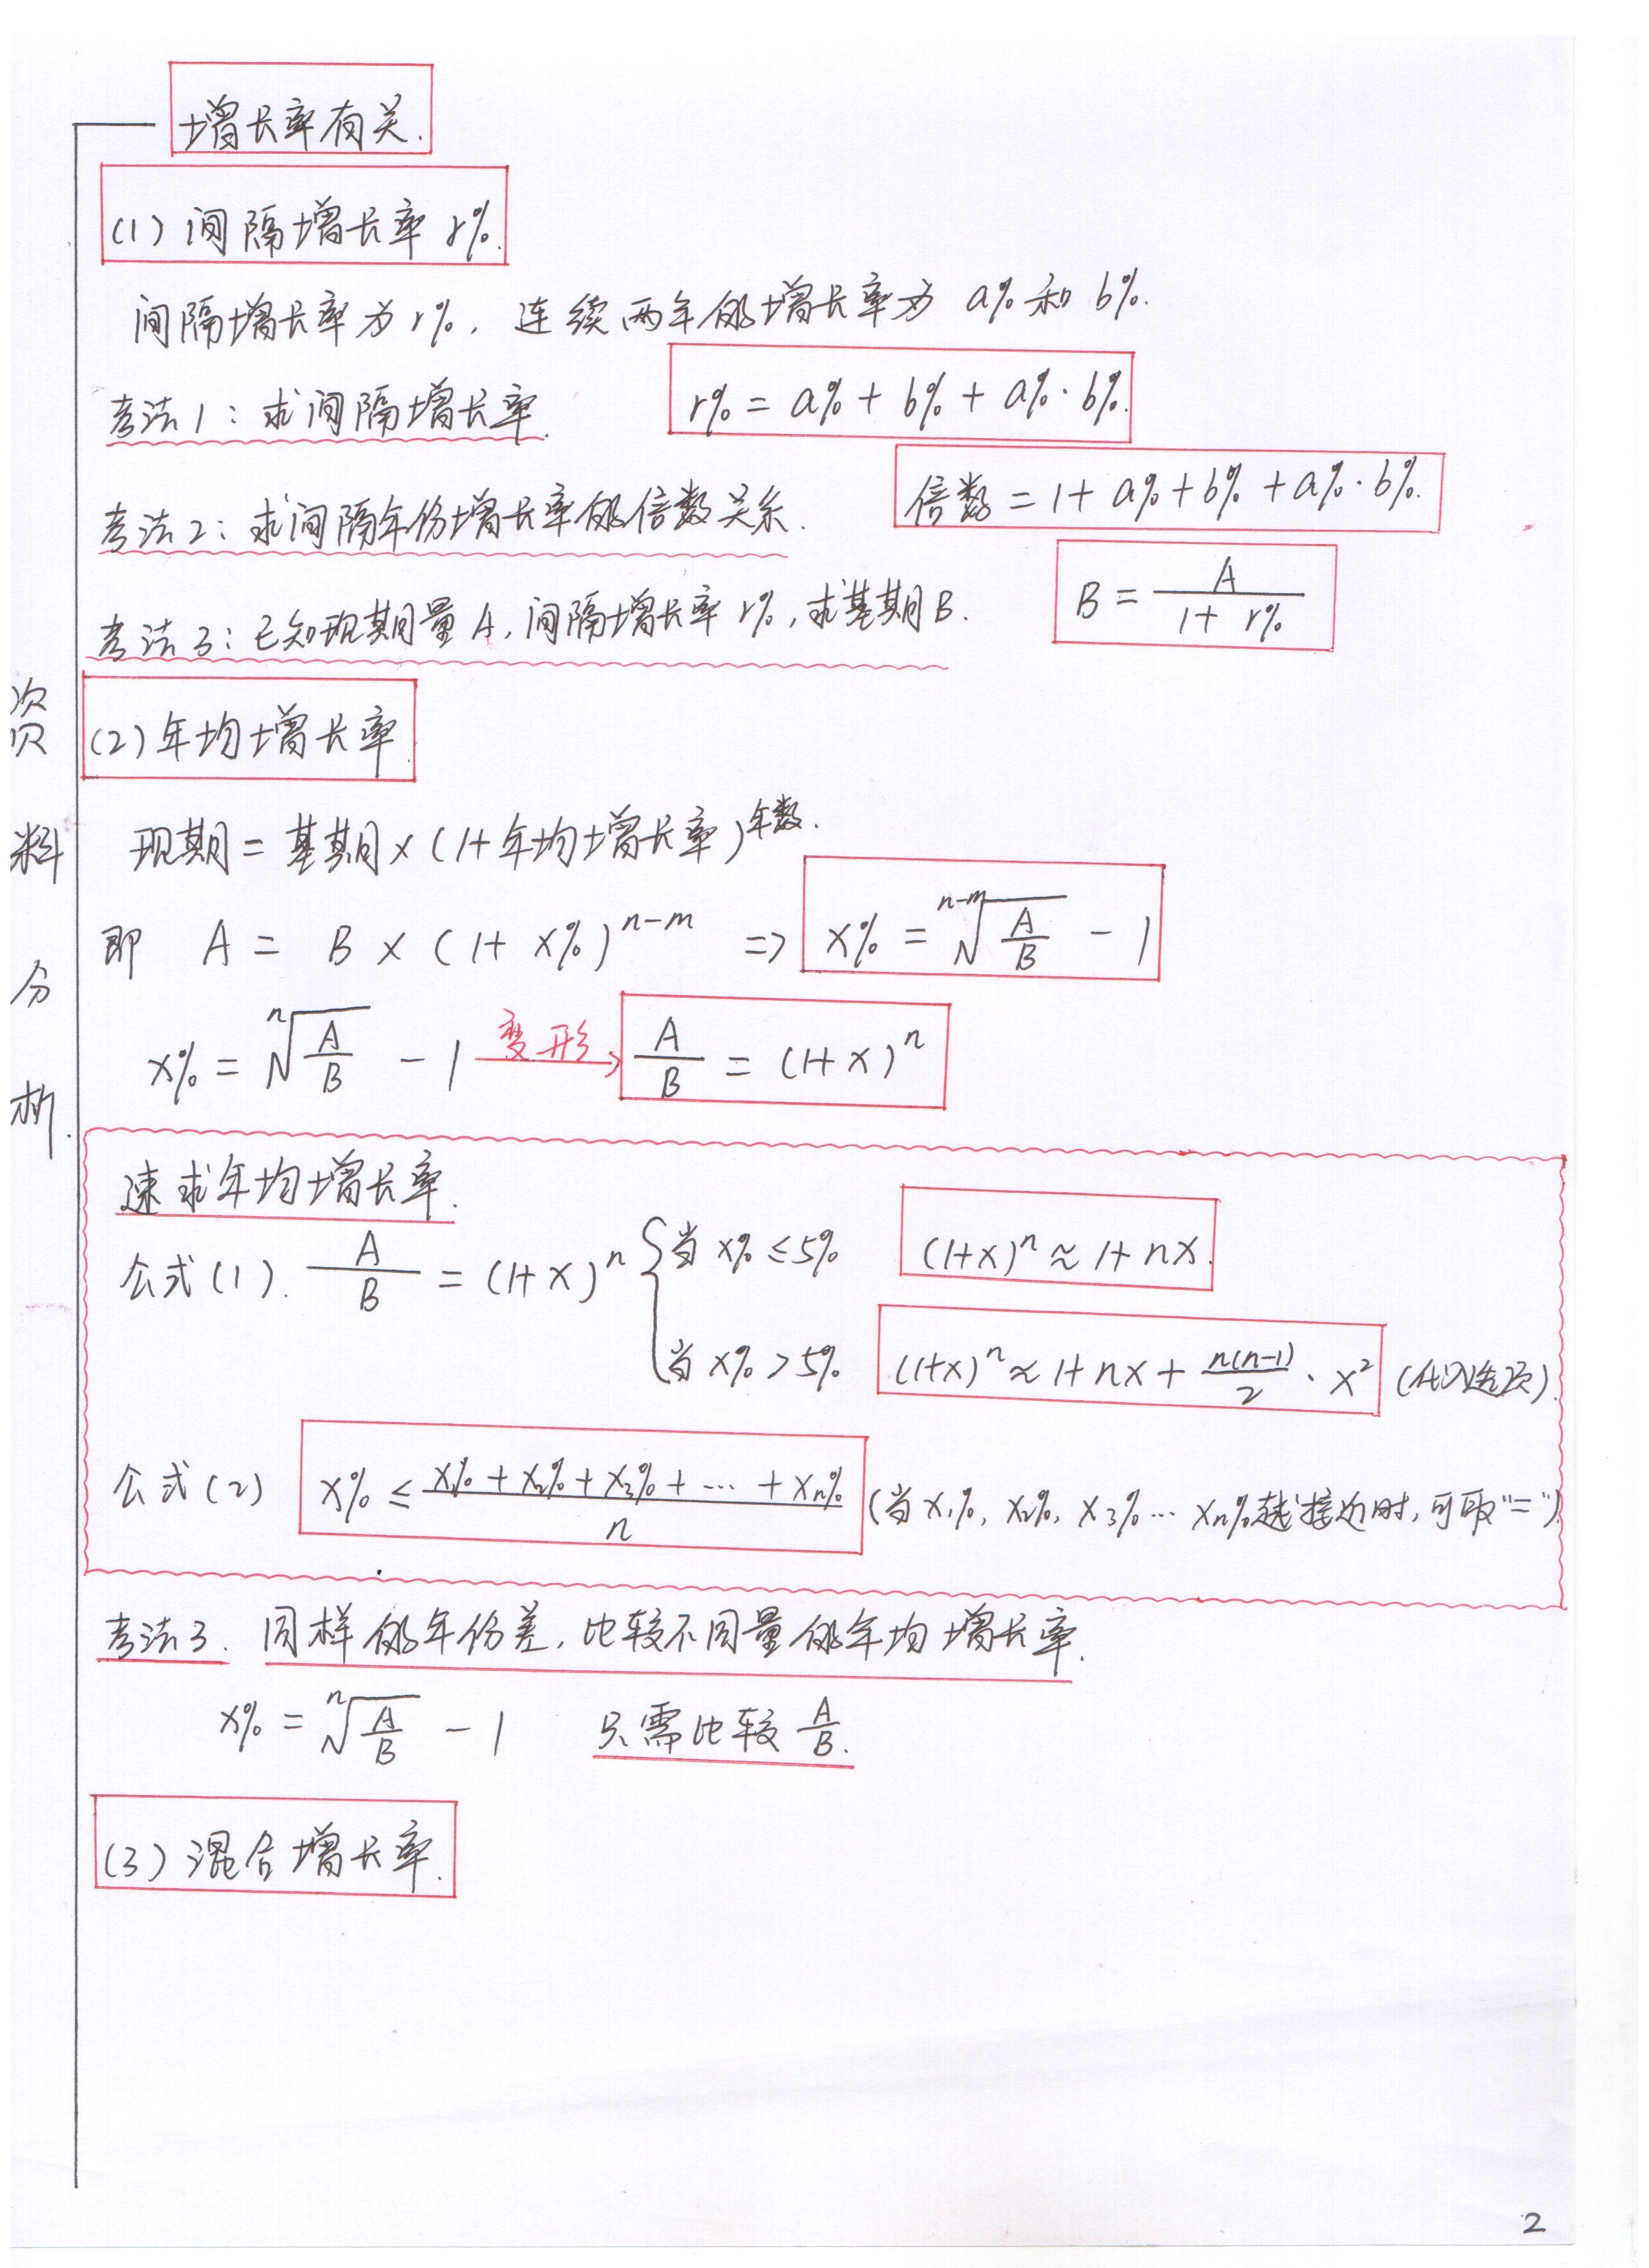 增长率有关.
(1) 间隔增长率 r%.
间隔增长率为 r%, 连续两年的增长率为 a% 和 b%.
考法1: 求间隔增长率. r% = a% + b% + a%·b%.
考法2: 求间隔年份增长率的倍数关系. 倍数 = 1 + a% + b% + a%·b%.
考法3: 已知现期量A, 间隔增长率 r%, 求基期B. B = A/(1+r%)
资料分析.
(2) 年均增长率.
现期 = 基期 × (1+年均增长率)^年数.
即 A = B × (1+x%)^(n-m) => x% = ^(n-m)√(A/B) - 1
x% = ^n√(A/B) - 1 变形→ A/B = (1+x)^n
速求年均增长率.
公式(1). A/B = (1+x)^n { 当 x% ≤ 5% (1+x)^n ≈ 1+nx.
当 x% > 5% (1+x)^n ≈ 1+nx+ n(n-1)/2 · x² (代入选项).
公式(2) x% ≤ (x₁%+x₂%+x₃%+…+xₙ%)/n (当x₁%, x₂%, x₃%…xₙ%越接近时, 可取"=")
考法3. 同样的年份差, 比较不同量的年均增长率.
x% = ^n√(A/B) - 1 只需比较 A/B.
(3) 混合增长率.
2